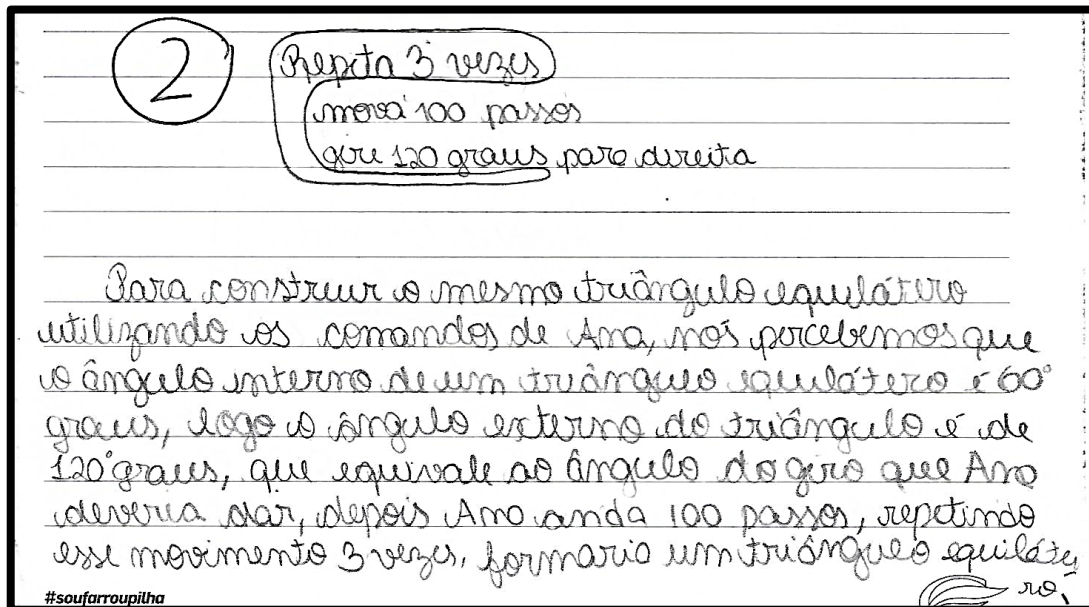 2
Repita 3 vezes
mova 100 passos
gire 120 graus para direita
Para construir o mesmo triângulo equilátero
utilizando os comandos de Ana, nós percebemos que
o ângulo interno de um triângulo equilátero é 60°
graus, logo o ângulo externo do triângulo é de
120° graus, que equivale ao ângulo do giro que Ana
deveria dar, depois Ana anda 100 passos, repetindo
esse movimento 3 vezes, formaria um triângulo equiláte
ro,
#soufarroupilha